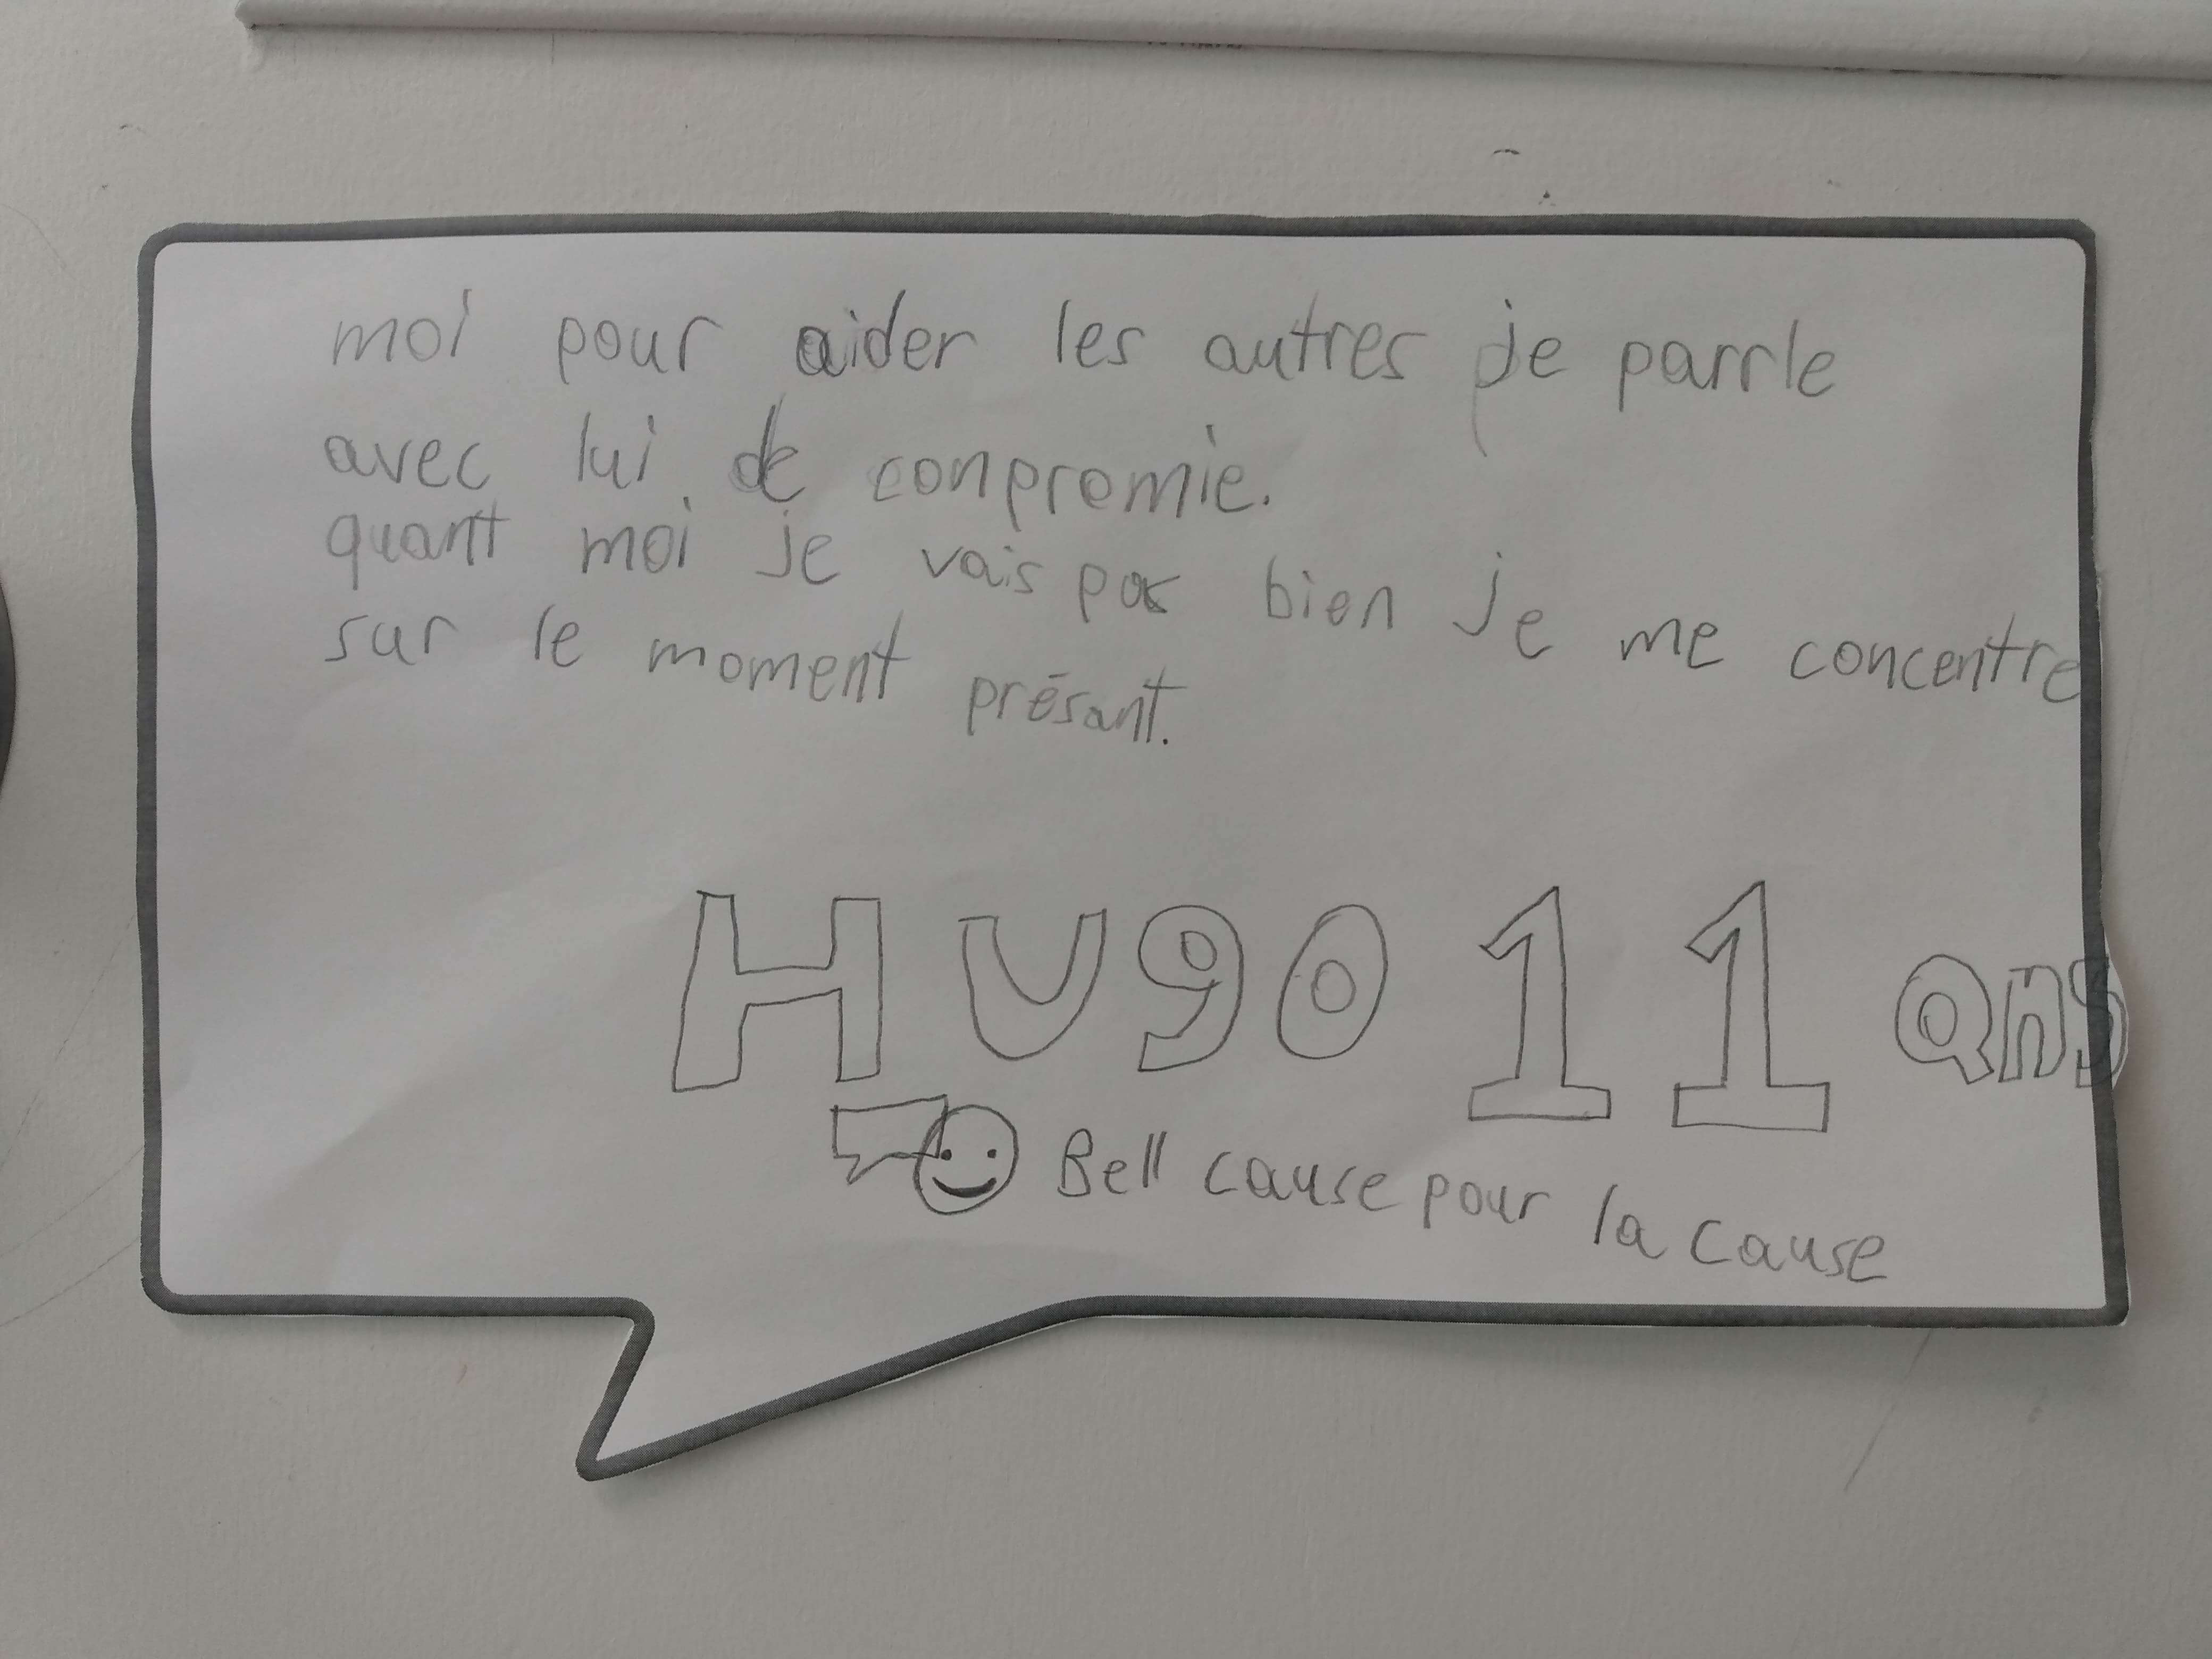 moi pour aider les autres je parrle
avec lui de conpromie.
quant moi je vais pas bien je me concentre
sur le moment présant.
HUgO 11 ans
Bell cause pour la cause